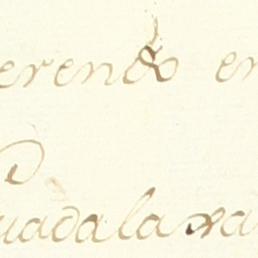 erendo en
uadalaxa